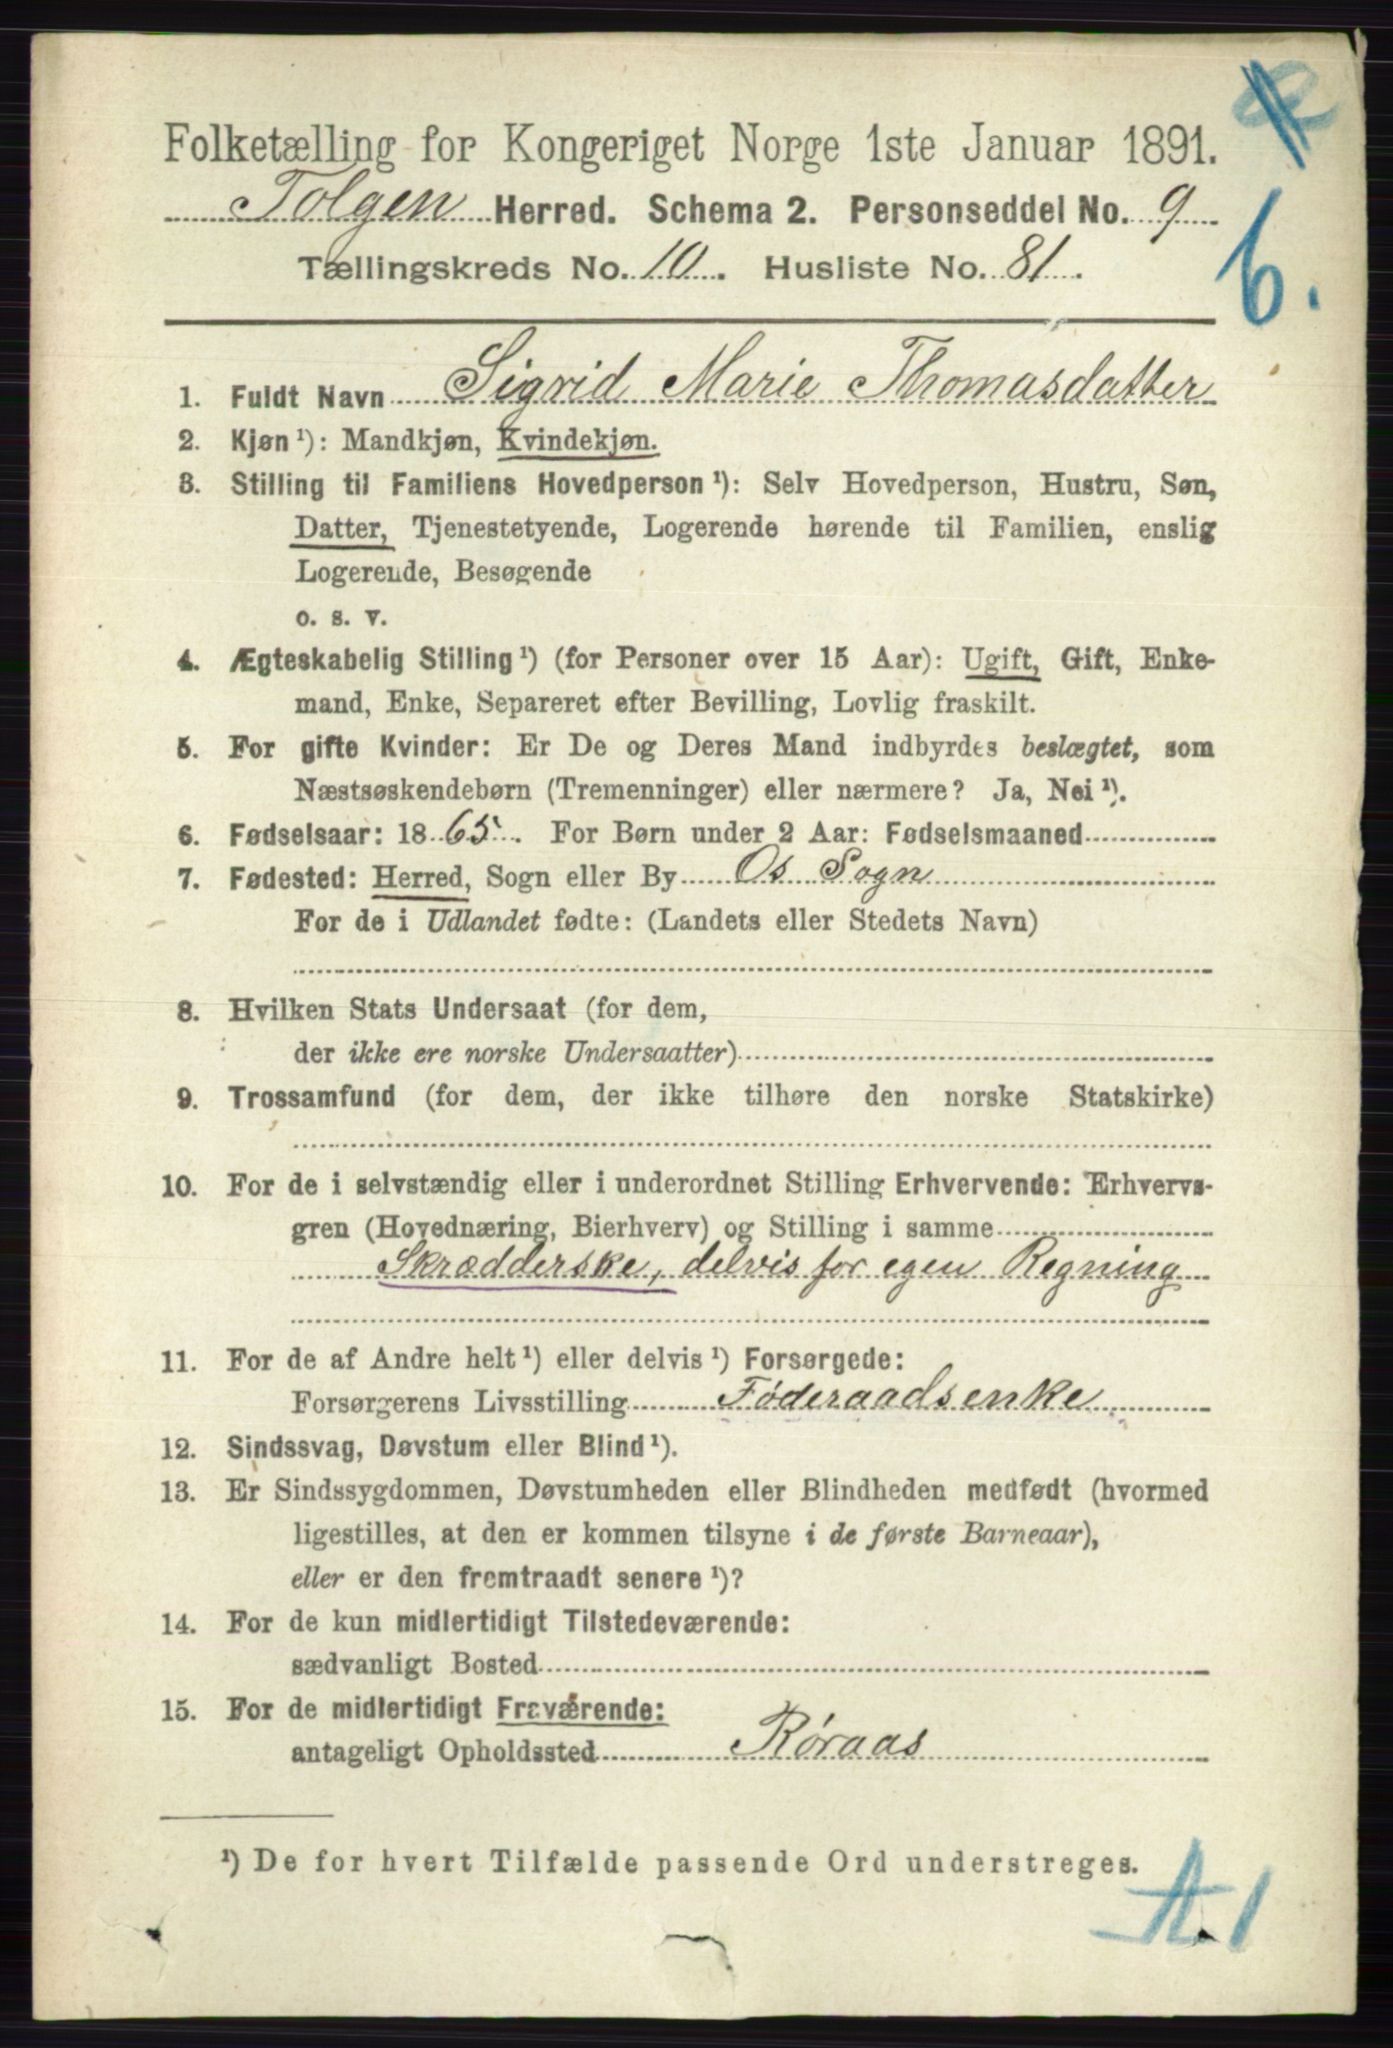 Folketælling for Kongeriget Norge 1ste Januar 1891.
Tolgen Herred. Schema 2. Personseddel No. 9
Tællingskreds No. 10. Husliste No. 81.
6.
1. Fuldt Navn Sigrid Marie Thomasdatter
2. Kjøn ¹): Mandkjøn, Kvindekjøn.
3. Stilling til Familiens Hovedperson ¹): Selv Hovedperson, Hustru, Søn,
Datter, Tjenestetyende, Logerende hørende til Familien, enslig
Logerende, Besøgende
o. s. v.
4. Ægteskabelig Stilling ¹) (for Personer over 15 Aar): Ugift, Gift, Enke-
mand, Enke, Separeret efter Bevilling, Lovlig fraskilt.
5. For gifte Kvinder: Er De og Deres Mand indbyrdes beslægtet, som
Næstsøskendebørn (Tremenninger) eller nærmere? Ja, Nei ¹).
6. Fødselsaar: 1865. For Børn under 2 Aar: Fødselsmaaned
7. Fødested: Herred, Sogn eller By Os Sogn
For de i Udlandet fødte: (Landets eller Stedets Navn)
8. Hvilken Stats Undersaat (for dem,
der ikke ere norske Undersaatter)
9. Trossamfund (for dem, der ikke tilhøre den norske Statskirke)
10. For de i selvstændig eller i underordnet Stilling Erhvervende: Erhvervs-
gren (Hovednæring, Bierhverv) og Stilling i samme
Skrædderske, delvis for egen Regning
11. For de af Andre helt ¹) eller delvis ¹) Forsørgede:
Forsørgerens Livsstilling Føderaadsenke
12. Sindssvag, Døvstum eller Blind ¹).
13. Er Sindssygdommen, Døvstumheden eller Blindheden medfødt (hvormed
ligestilles, at den er kommen tilsyne i de første Barneaar),
eller er den fremtraadt senere ¹)?
14. For de kun midlertidigt Tilstedeværende:
sædvanligt Bosted
15. For de midlertidigt Fraværende:
antageligt Opholdssted Røraas
¹) De for hvert Tilfælde passende Ord understreges.
A1